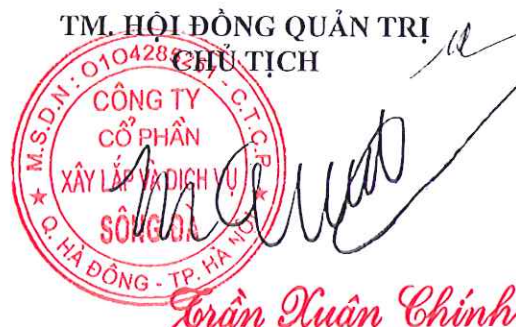 TM. HỘI ĐỒNG QUẢN TRỊ
CHỦ TỊCH
M.S.D.N : 0104288 - C.T.C.P
CÔNG TY
CỔ PHẦN
XÂY LẮP VÀ DỊCH VỤ
SÔNG ĐÀ
Q. HÀ ĐÔNG - TP. HÀ NỘI
Trần Xuân Chính